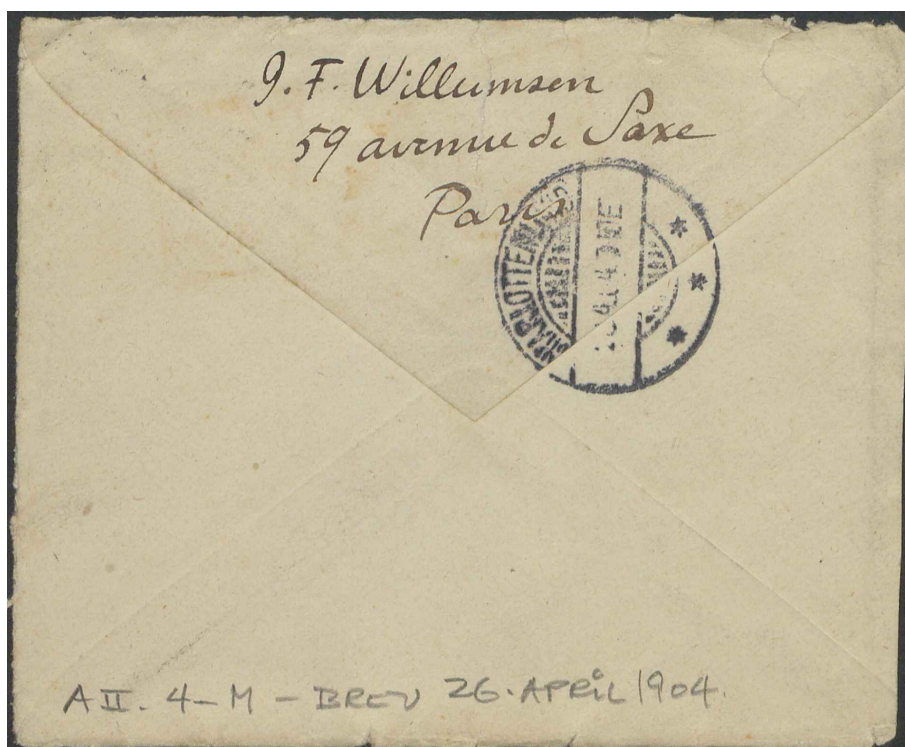 J. F. Willumsen
59 avenue de Saxe
Paris
CHARLOTTENLUND
A II. 4-M - BREV 26. APRIL 1904.